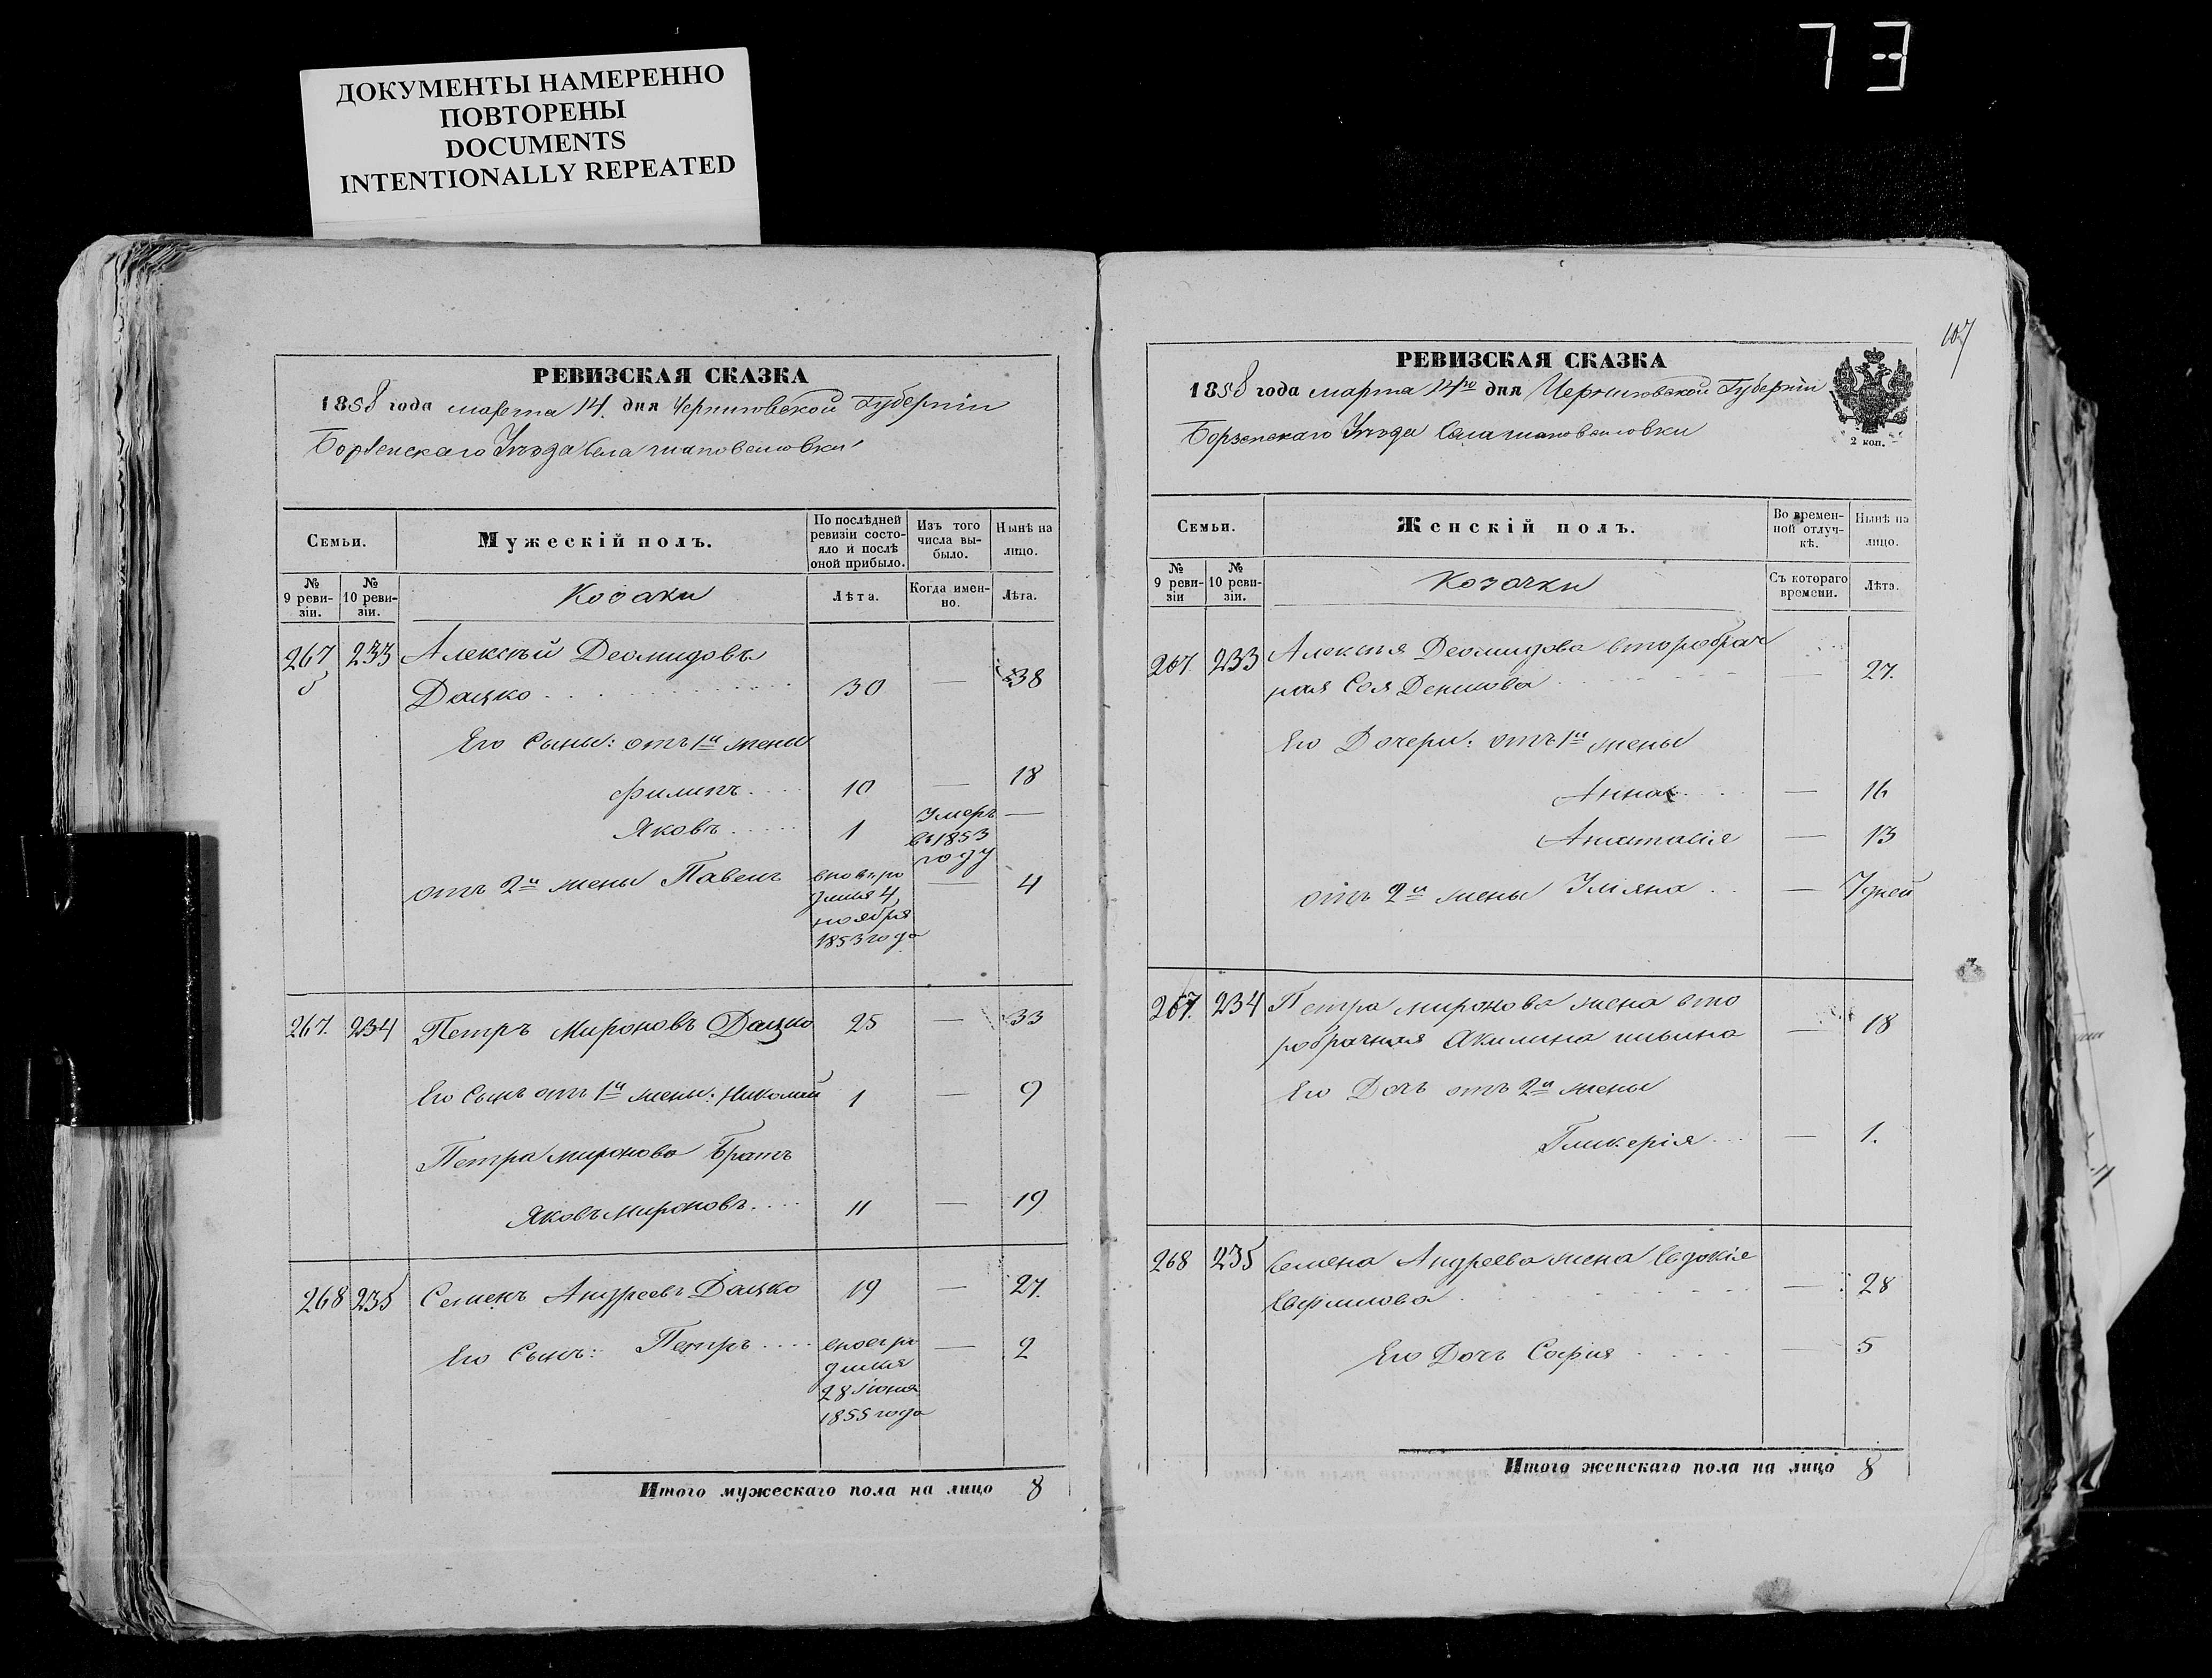 73
ДОКУМЕНТЫ НАМЕРЕННО
ПОВТОРЕНЫ
DOCUMENTS
INTENTIONALLY REPEATED
РЕВИЗСКАЯ СКАЗКА
1858 года марта 14. дня Черниговской Губерніи
Борзенскаго Уѣзда Села Шаповаловки
Семьи.
Мужескій полъ.
По послѣдней ревизіи состояло и послѣ оной прибыло.
Изъ того числа выбыло.
Нынѣ на лицо.
№ 9 ревизіи.
№ 10 ревизіи.
Козаки
Лѣта.
Когда именно.
Лѣта.
267 233 Алексѣй Деомидовъ
Дацко 30 — 38
Его Сыны: отъ 1й жены
Филипъ 10 — 18
Яковъ 1 Умеръ въ 1853 году —
отъ 2й жены Павелъ 4 ноября 1853 года — 4
267. 234 Петръ Мироновъ Дацко 25 — 33
Его Сынъ отъ 1й жены: Николай 1 — 9
Петра Миронова братъ
Яковъ Мироновъ 11 — 19
268 235 Семенъ Андреевъ Дацко 19 — 27.
Его Сынъ: Петръ 28 Іюня 1855 года — 2
Итого мужескаго пола на лицо 8
107
РЕВИЗСКАЯ СКАЗКА
1858 года марта 14го дня Черниговской Губерніи
Борзенскаго Уѣзда Села Шаповаловки
2 коп.
Семьи.
Женскій полъ.
Во временной отлучкѣ.
Нынѣ на лицо.
№ 9 ревизіи
№ 10 ревизіи.
Козачки
Съ котораго времени.
Лѣта.
267. 233 Алексѣя Деомидова второбрач
ная — 27.
Его Дочери: отъ 1й жены
Анна — 16
Анастасія — 13
отъ 2й жены Уліяна — 7 дней
267. 234 Петра Миронова жена вто
робрачная Акилина Ильина — 18
Его Дочь отъ 2й жены
Гликерія — 1.
268 235 Семена Андреева жена Евдокія
— 28
Его Дочь Софія — 5
Итого женскаго пола на лицо 8